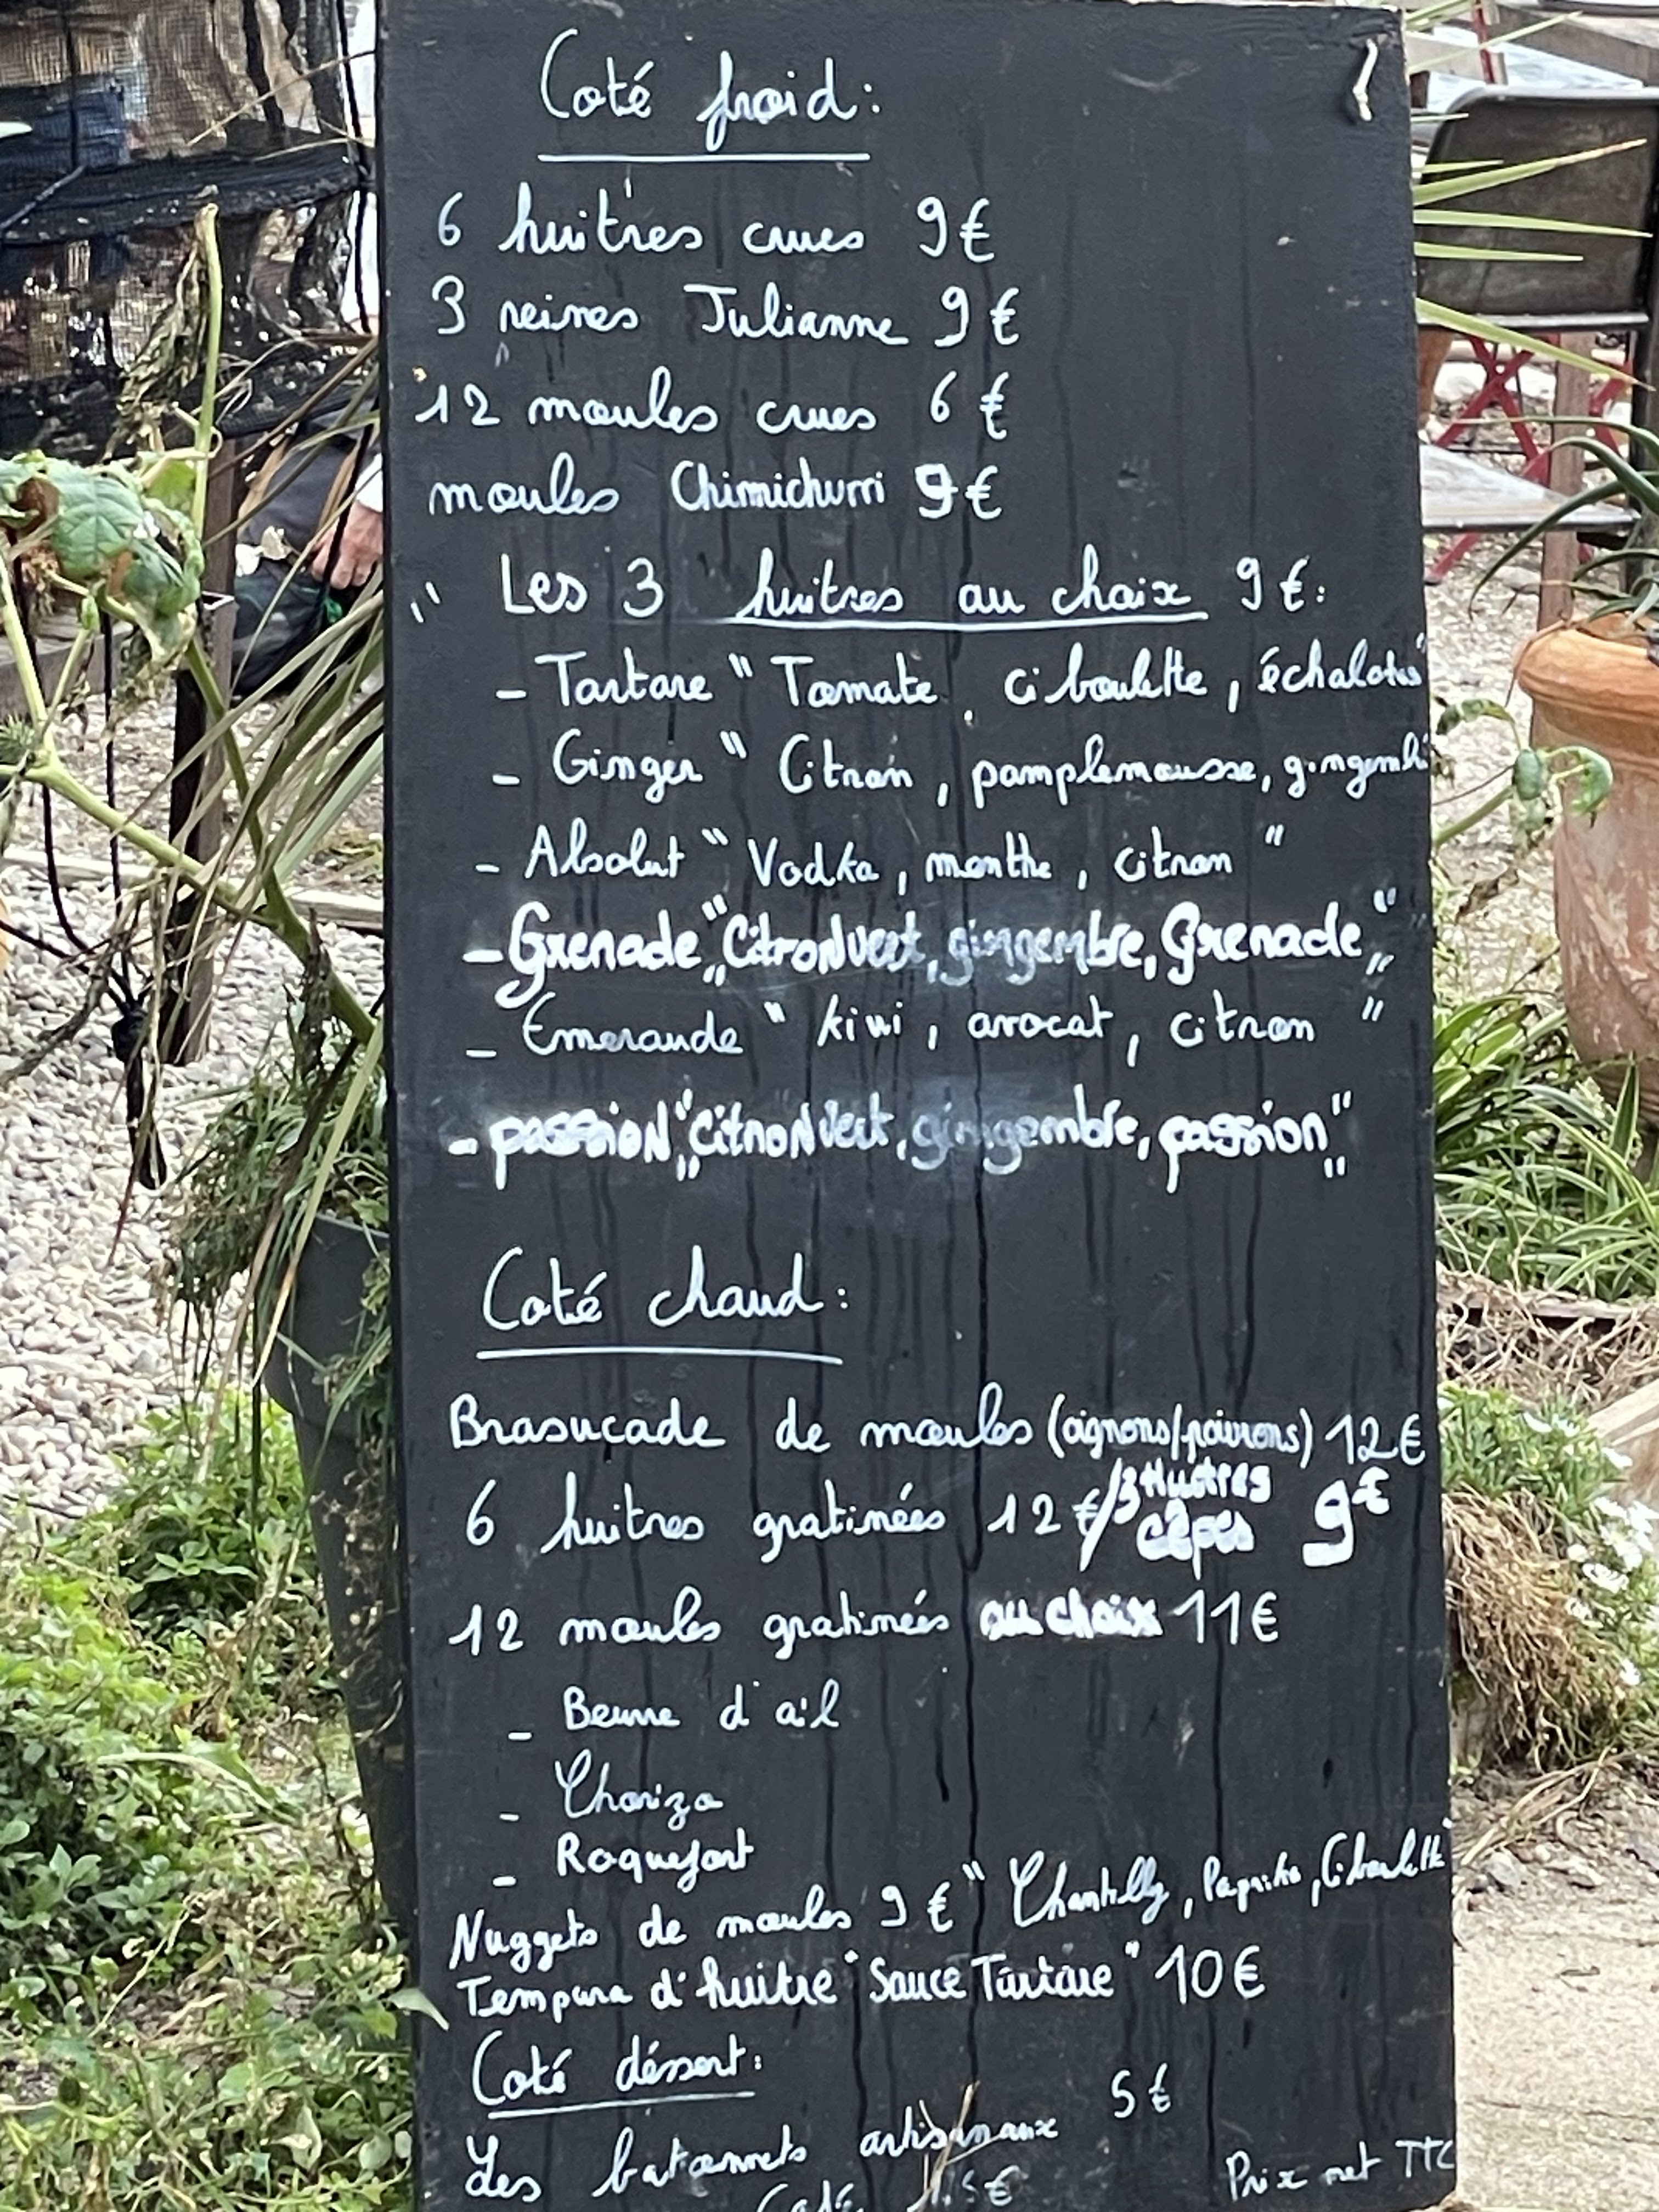 Coté froid:
6 huitres crues 9€
3 reines Julianne 9€
12 moules crues 6€
moules Chimichurri 9€
" Les 3 huitres au choix 9€:
- Tartare " Tomate, ciboulette, échalotes"
- Ginger " Citron, pamplemousse, gingemb
- Absolut " Vodka, menthe, citron "
- Grenade "Citron vert, gingembre, Grenade"
- Emeraude " kiwi, avocat, citron "
- passion "citron vert, gingembre, passion"
Coté chaud:
Brasucade de moules (oignons/poivrons) 12€
6 huitres gratinées 12€/3 Huitres cèpes 9€
12 moules gratinées au choix 11€
- Beurre d'ail
- Chorizo
- Roquefort
Nuggets de moules 9€ " Chantilly, Paprika, Ciboulette"
Tempura d'huitre "Sauce Tartare" 10€
Coté déssert:
Les batonnets artisanaux 5€
Café 1.5€ Prix net TTC